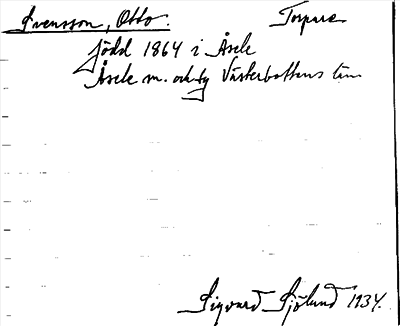 Svensson, Otto. Torpare
född 1864 i Åsele
Åsele sn. och tg Västerbottens län
Sigvard Sjölund 1934.